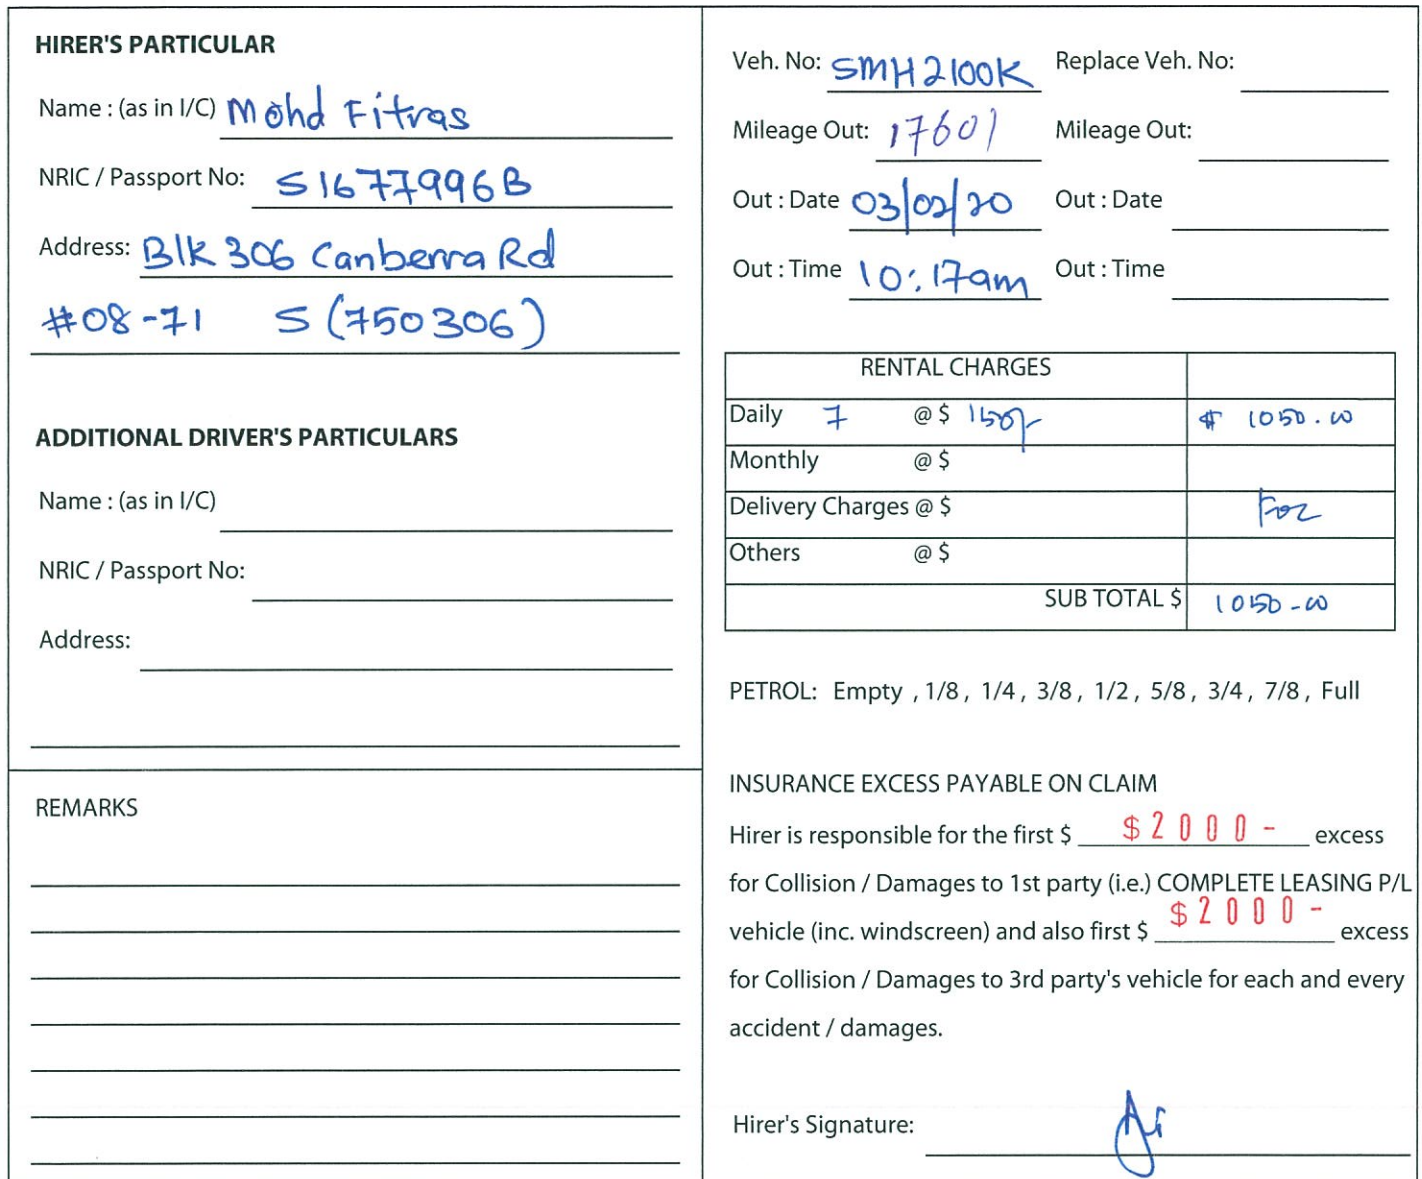 HIRER'S PARTICULAR
Name : (as in I/C) Mohd Fitras
NRIC / Passport No: S1677996B
Address: Blk 306 Canberra Rd
#08-71 S (750306)
ADDITIONAL DRIVER'S PARTICULARS
Name : (as in I/C)
NRIC / Passport No:
Address:
REMARKS
Veh. No: SMH2100K Replace Veh. No:
Mileage Out: 17601 Mileage Out:
Out : Date 03/02/20 Out : Date
Out : Time 10:17am Out : Time
RENTAL CHARGES
Daily 7 @ $ 150/- $ 1050.00
Monthly @ $
Delivery Charges @ $ Foc
Others @ $
SUB TOTAL $ 1050-00
PETROL: Empty , 1/8 , 1/4 , 3/8 , 1/2 , 5/8 , 3/4 , 7/8 , Full
INSURANCE EXCESS PAYABLE ON CLAIM
Hirer is responsible for the first $ $2000- excess
for Collision / Damages to 1st party (i.e.) COMPLETE LEASING P/L
vehicle (inc. windscreen) and also first $ $2000- excess
for Collision / Damages to 3rd party's vehicle for each and every
accident / damages.
Hirer's Signature: